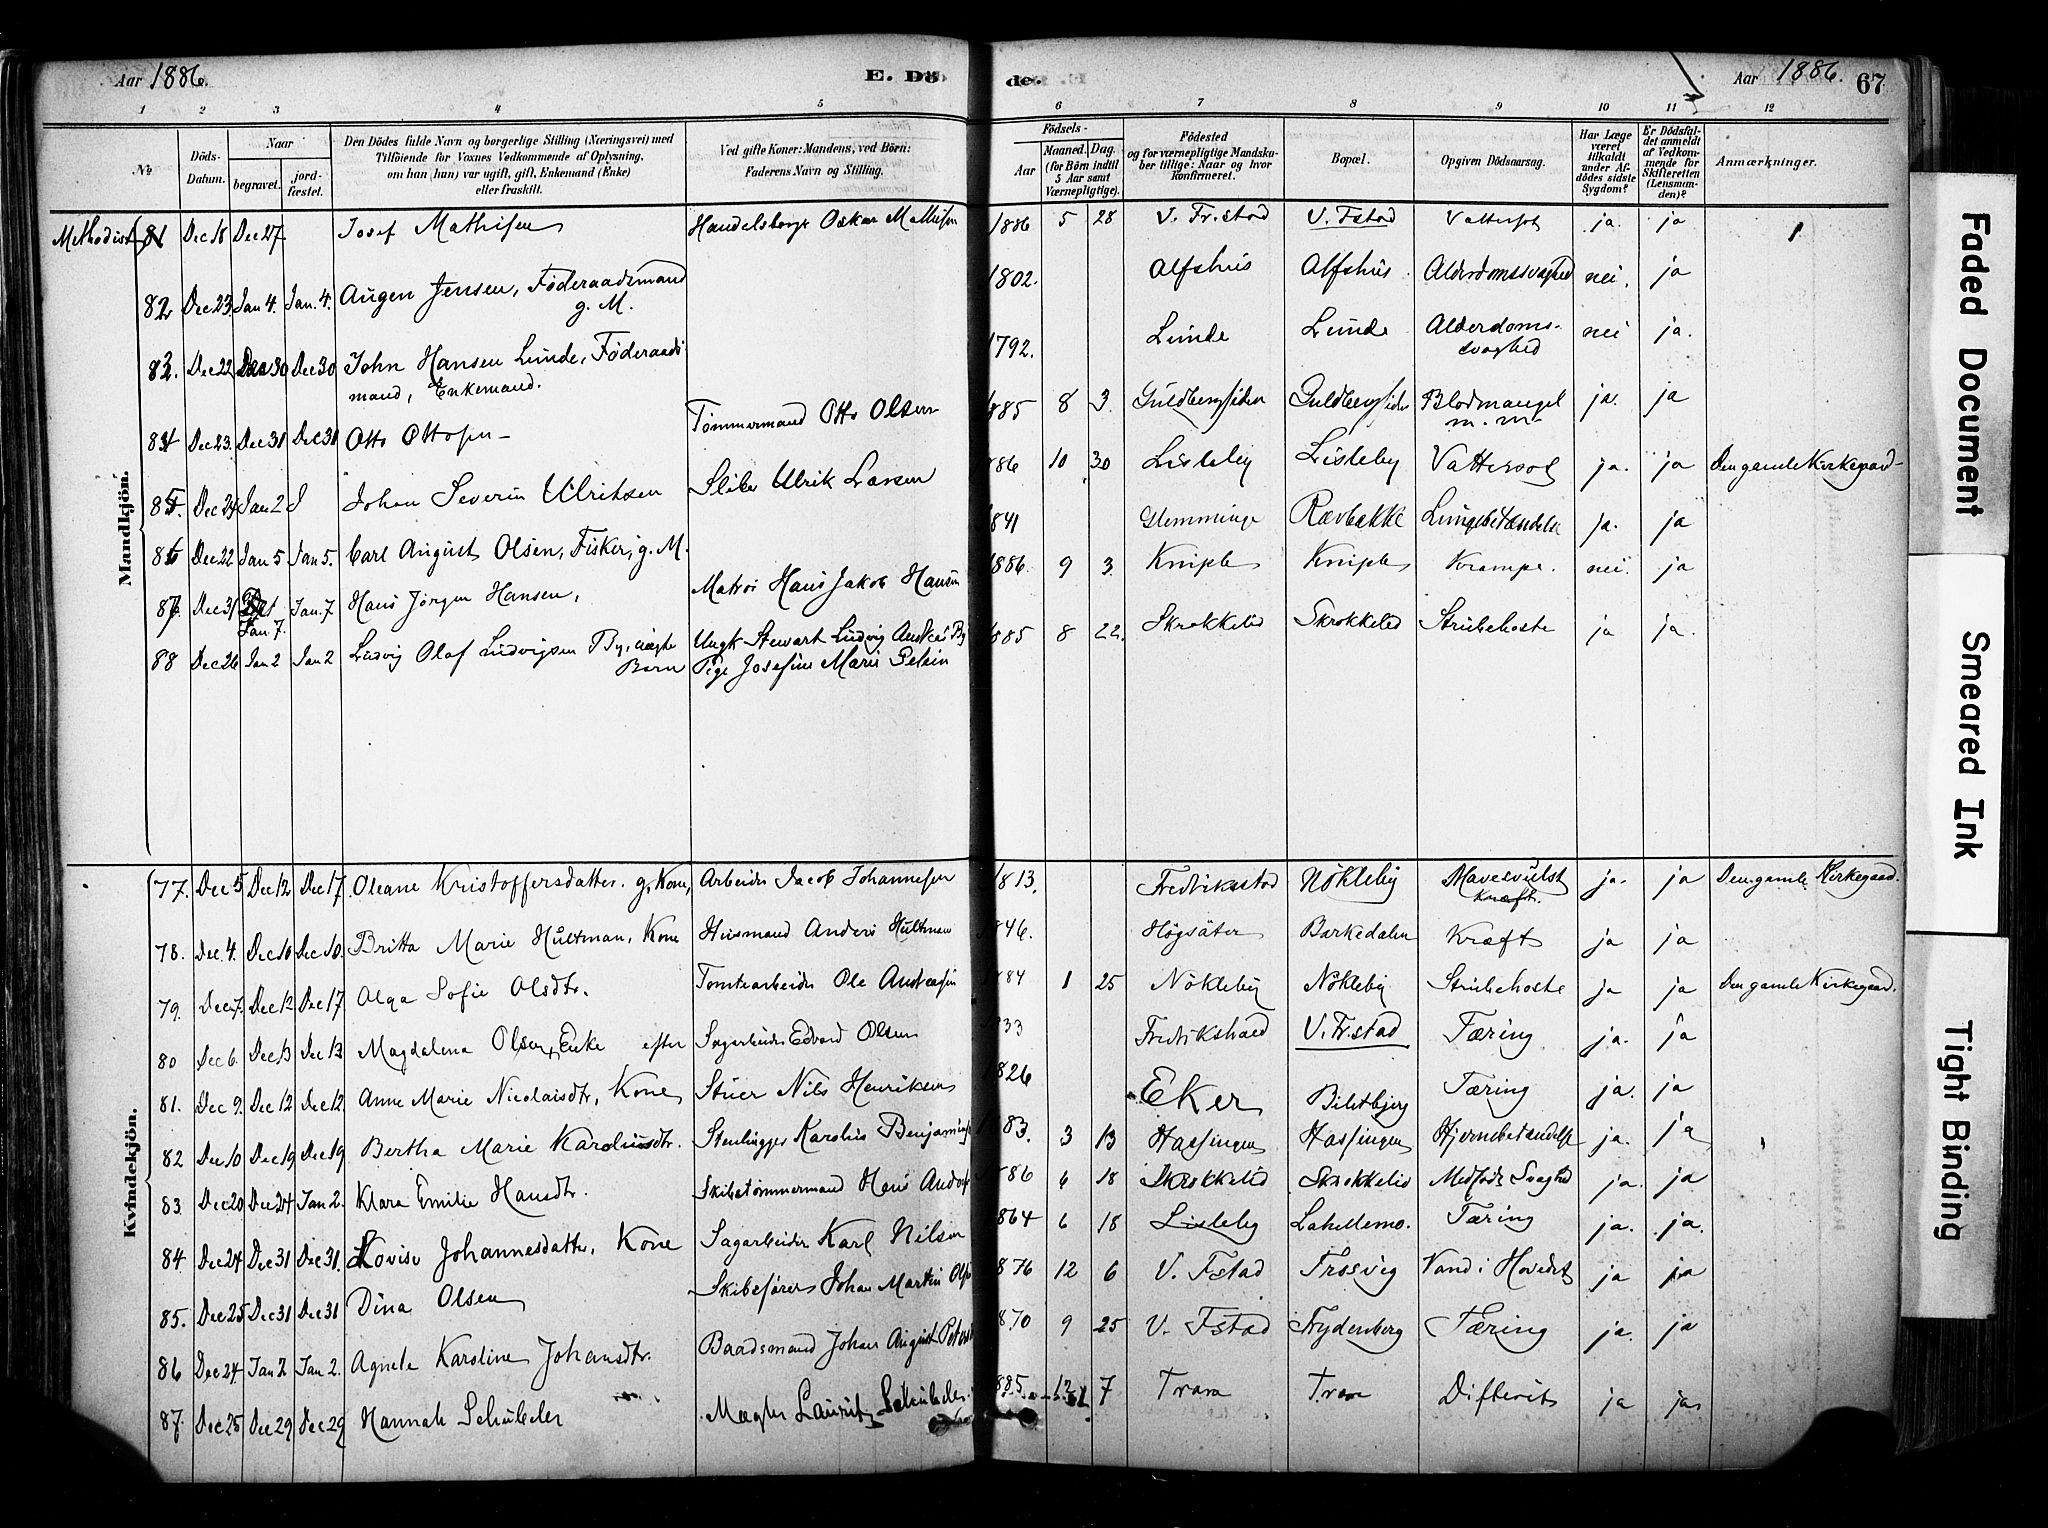 Aar 1886. E. Dö
1 2 3 4 5
№ Döds-Datum. Naar begravet. jord-fæstet. Den Dödes fulde Navn og borgerlige Stilling (Næringsvei) med Tilföiende for Voxnes Vedkommende af Oplysning, om han (hun) var ugift, gift, Enkemand (Enke) eller fraskilt. Ved gifte Koner: Mandens, ved Börn: Faderens Navn og Stilling.
Mandkjön.
Methodist 81 Dec 18 Dec 27 Josef Mathisen Handelsborger Oskar Mathisen
82 Dec 23 Jan 4. Jan. 4. Augen Jensen, Föderaadsmand
g. M.
83. Dec 22 Dec 30 Dec 30 John Hansen Lunde, Föderaads
mand, Enkemand.
84 Dec 23. Dec 31 Dec 31 Otto Ottosen Tömmermand Otto Olsen
85. Dec 24 Jan 2 Johan Severin Ulriksen Sliber Ulrik Larsen
86 Dec 22 Jan 5 Jan 5. Carl August Olsen, Fisker, g. M.
87. Dec 31 Jan. 7. Jan. 7 Hans Jörgen Hansen, Matros Hans Jakob Hansen
88 Dec 26 Jan 2 Jan 2 Ludvig Olaf Ludvigsen By, uægte Ungk. Stewart Ludvig
Barn Pige Josefine Marie
Kvindekjön.
77. Dec 5 Dec 12 Dec 17. Oleane Kristoffersdatter. g. Kone, Arbeider Jacob Johannesen
78. Dec. 4. Dec 10 Dec 10. Britta Marie Hultman, Kone Husmand Anders Hultman
79. Dec 7. Dec 12 Dec 17 Olga Sofie Olsdtr. Tomtearbeider Ole Andreasen
80 Dec 6. Dec 13 Dec 13 Magdalena Olsen, Enke efter Sagarbeider Edvard Olsen
81. Dec 9. Dec 12 Dec 12. Anne Marie Nicolaisdtr, Kone Stuer Nils Henriksen
82 Dec 10 Dec 19 Dec 19 Bertha Marie Karoliusdtr. Stenhugger Karolius
83. Dec 20 Dec 24 Jan 2. Klara Emilie Hansdtr. Skibstömmermand Hans
84. Dec 24 Dec 31 Dec 31. Lovise Johannesdatter, Kone Sagarbeider Karl Nilsen
85. Dec 25 Dec 31 Dec 31 Dina Olsen Skibsförer Johan Martin
86 Dec 24. Jan 2 Jan 2. Agnete Karoline Johansdtr. Baadsmand Johan August
87. Dec 25 Dec 29 Dec 29 Hannah Schübeler Mægler Lauritz Schübeler.
de. Aar 1886. 67
6 7 8 9 10 11 12
Födsels- Aar Maaned. Dag. (for Börn indtil 5 Aar samt Værnepligtige). Födested og for værnepligtige Mandskaber tillige: Naar og hvor Konfirmeret. Bopæl. Opgiven Dödsaarsag. Har Læge været tilkaldt under Afdödes sidste Sygdom? Er Dödsfaldet anmeldt af Vedkommende for Skifteretten (Lensmanden)? Anmærkninger.
1886 5 28 V. Fr.stad V. Fstad Vattersot ja. ja
1802. Alfshus Alfshus Alderdomssvaghed nei. ja
1792. Lunde Lunde Alderdoms-
svaghed nei ja.
1885 8 3. Guldbergsiden Guldbergsiden Blodmangel
m. m. ja. ja
86 10 30 Lisleby Lisleby Vattersot ja. ja Den gamle Kirkegaard
1841 Glemminge Rævbakke Lungebetændelse ja. ja
1886. 9 3. Kniple Kniple Krampe. nei ja
1885 8 22. Skrokkelid Skrokkelid Strubehoste ja ja.
1813. Fredrikstad Nökleby Mavesvulst
Kræft. ja. ja Den gamle Kirkegaard.
46. Högsäter Barkedalen Kræft ja ja
84 1 25 Nökleby Nökleby Strubehoste ja ja Den gamle Kirkegaard.
33 Fredrikshald V. Fr.stad Tæring ja. ja
1826 Eker Biletbjerg Tæring ja. ja
83. 3 13 Hassingen Hassingen Hjernebetændelse ja. ja
86 6 18 Skrokkelid Skrokkelid Medfödt Svaghed ja. ja
864 6 18 Lisleby Lahellemo. Tæring ja. ja.
876 12 6 V. Fstad Trosvig Vand i Hovedet ja ja
870 9 25 V. Fstad Frydenberg Tæring ja. ja
885. 12 7 Trara Trara Difterit ja ja
Faded Document
Smeared Ink
Tight Binding